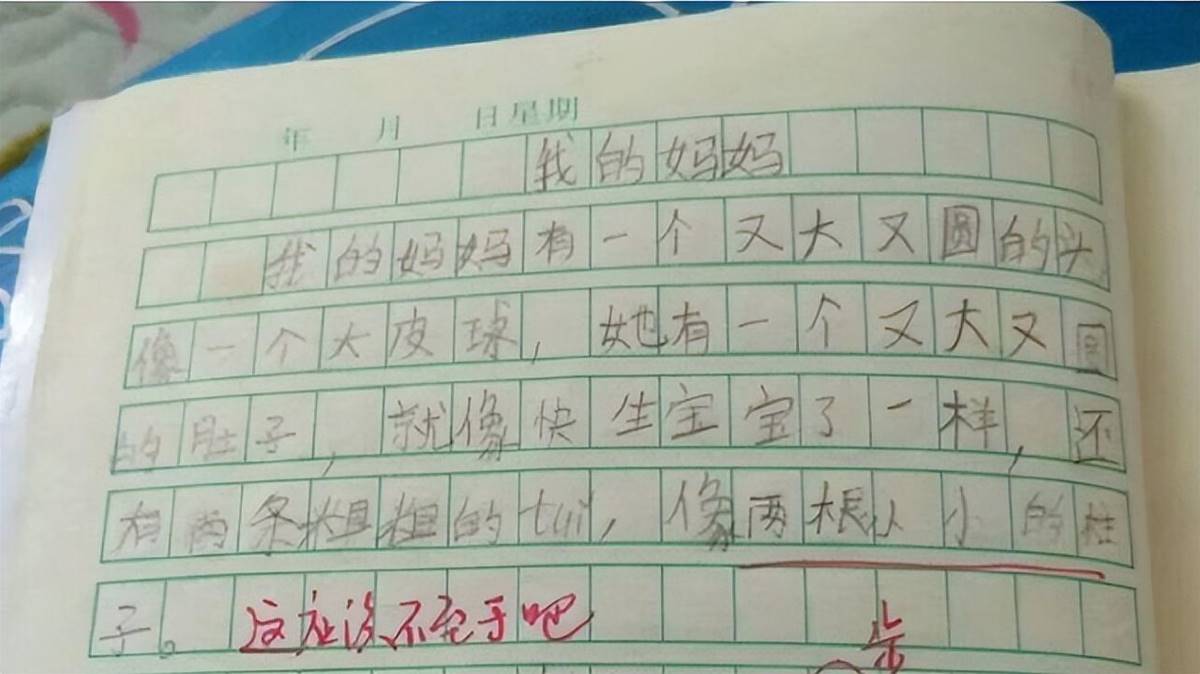 年 月 日星期
我的妈妈
我的妈妈有一个又大又圆的头
像一个大皮球,她有一个又大又圆
的肚子,就像快生宝宝了一样,还
有两条粗粗的tui,像两根小小的柱
子。 这应该不至于吧